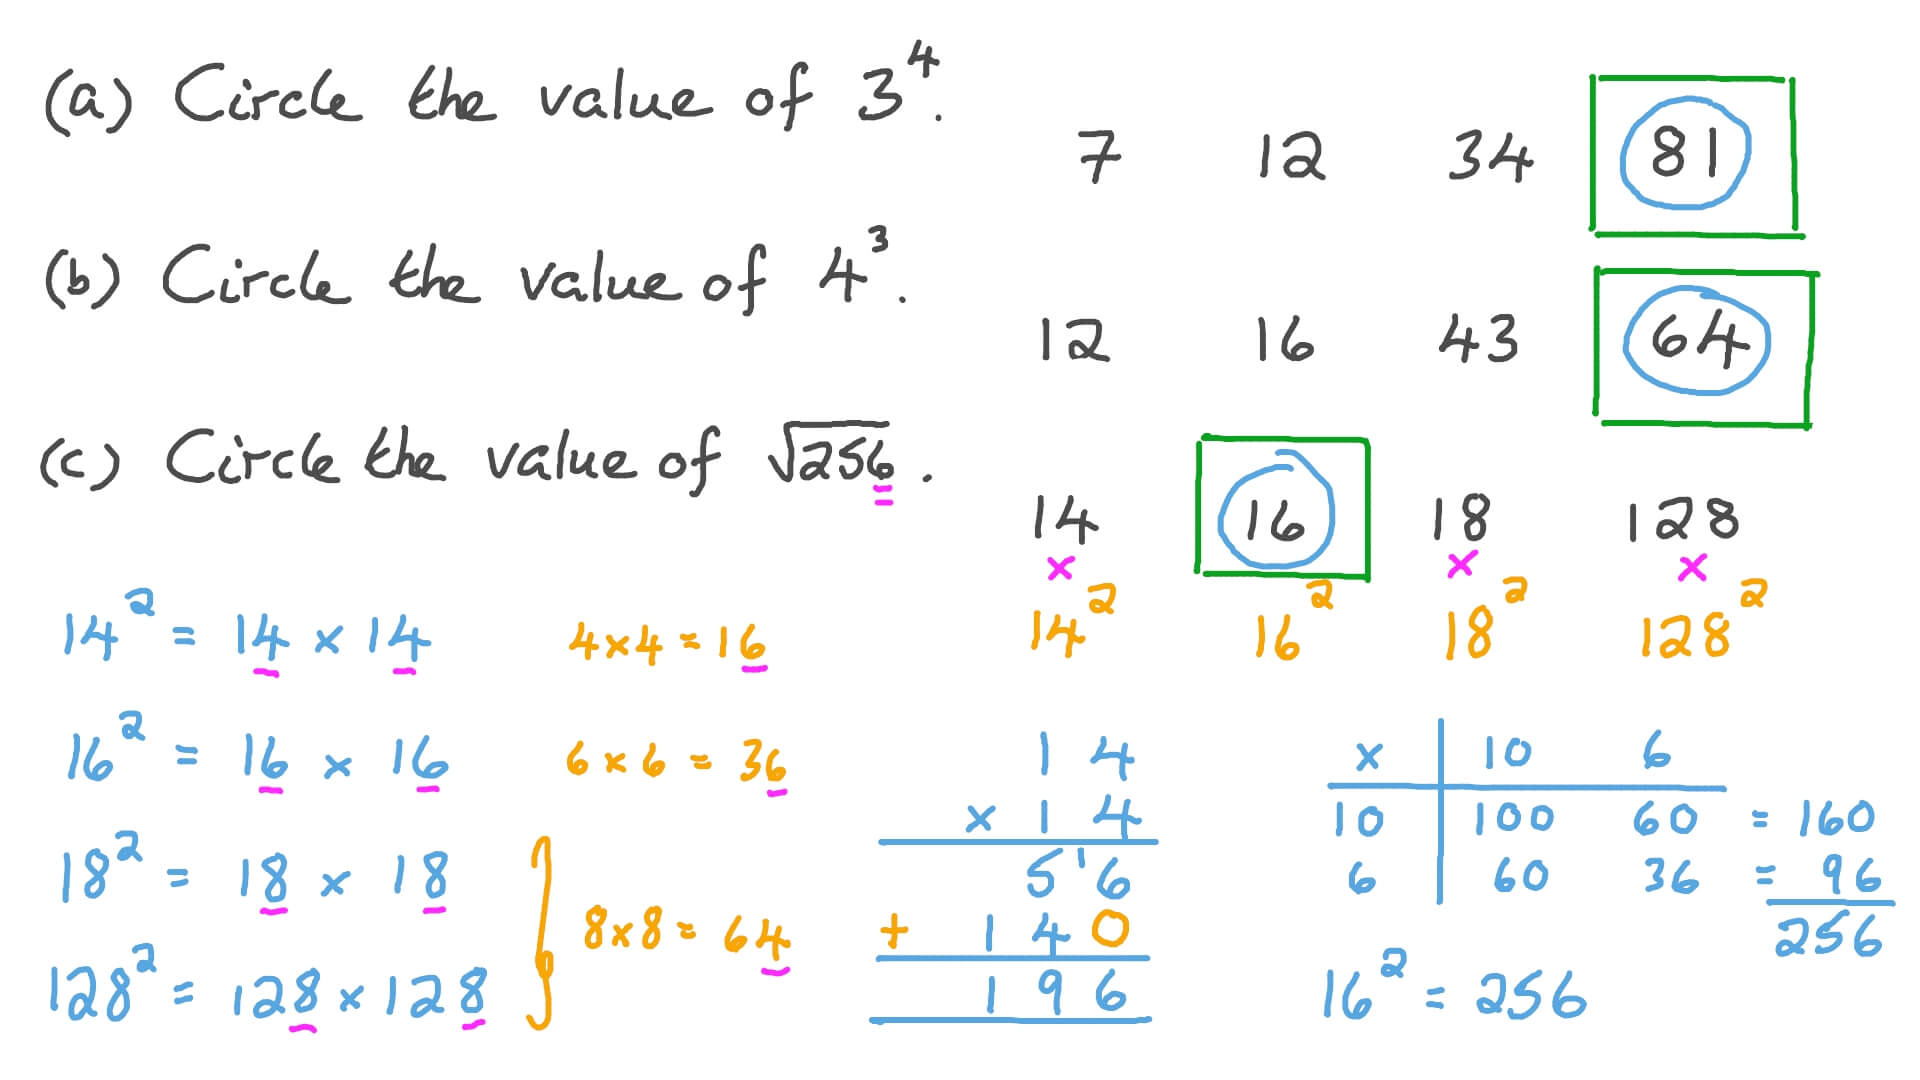 (a) Circle the value of 3⁴.
7 12 34 81
(b) Circle the value of 4³.
12 16 43 64
(c) Circle the value of √256.
14 16 18 128
× × ×
14² 16² 18² 128²
14² = 14 × 14 4×4 = 16
16² = 16 × 16 6×6 = 36
18² = 18 × 18
8×8 = 64
128² = 128 × 128
1 4
× 1 4
5 ¹6
+ 1 4 0
1 9 6
× 10 6
10 100 60 = 160
6 60 36 = 96
256
16² = 256